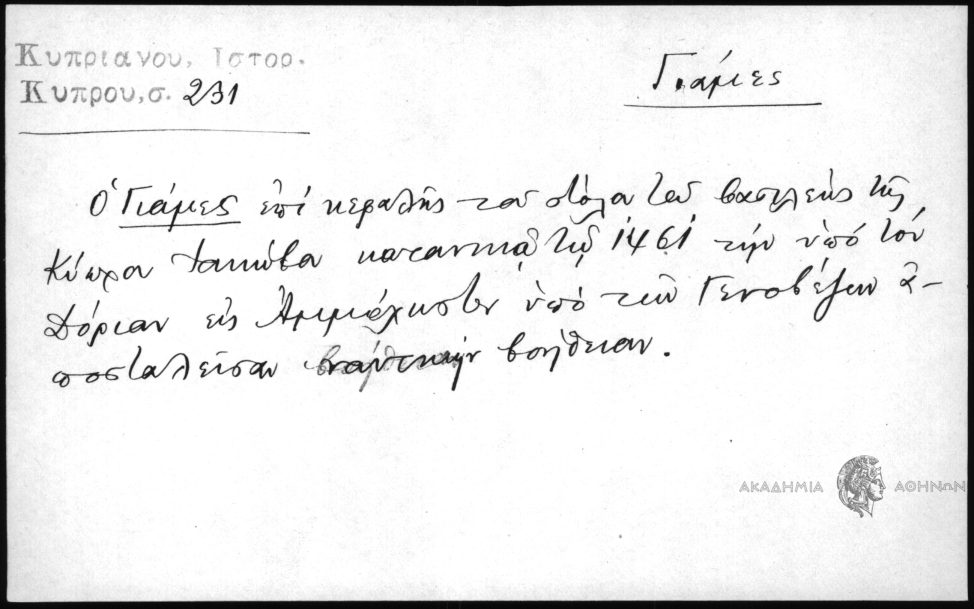 Κυπριανου, Ιστορ.
Κυπρου, σ. 231
Γιάμες
Ὁ Γιάμες ἐπί κεφαλῆς του στόλου του βασιλέως τῆς
Κύπρου Ιακώβου κατανικᾷ τῷ 1461 τήν ὑπό τον
Δόριαν εἰς Ἀμμόχωστον ὑπό τῶν Γενοβέζων ἀ-
ποσταλεῖσαν ναυτικήν βοήθειαν.
ΑΚΑΔΗΜΙΑ ΑΘΗΝΩΝ